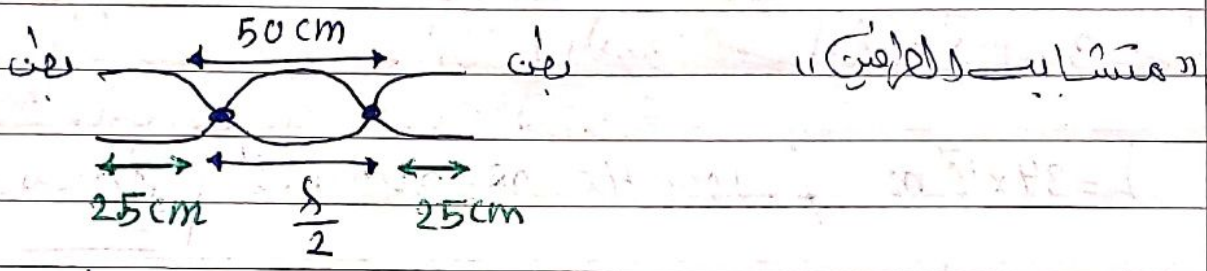 «متشابه الطرفين»
50 cm
بطن بطن
25cm λ/2 25cm